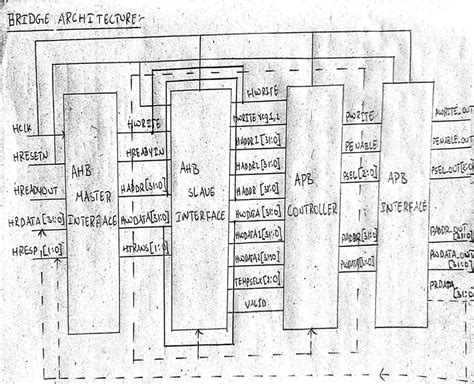 BRIDGE ARCHITECTURE:-
HCLK
HRESETN
HREADYOUT
HRDATA[31:0]
HRESP[1:0]
AHB
MASTER
INTERFACE
HWRITE
HREADYIN
HADDR[31:0]
HWDATA[31:0]
HTRANS[1:0]
AHB
SLAVE
INTERFACE
HWRITE
HADDR1[31:0]
HADDR2[31:0]
HADDR[31:0]
HWDATA[31:0]
HWDATA1[31:0]
TEMPSELX[2:0]
VALID
APB
CONTROLLER
PWRITE
PENABLE
PSEL[2:0]
PADDR[31:0]
PWDATA[31:0]
APB
INTERFACE
PWRITE_OUT
PENABLE_OUT
PADDR_OUT
[31:0]
PWDATA_OUT
[31:0]
PRDATA
[31:0]